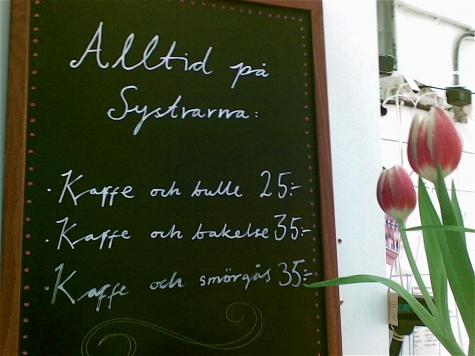 Alltid på
Systrarna:
· Kaffe och bulle 25:-
· Kaffe och bakelse 35:-
· Kaffe och smörgås 35:-